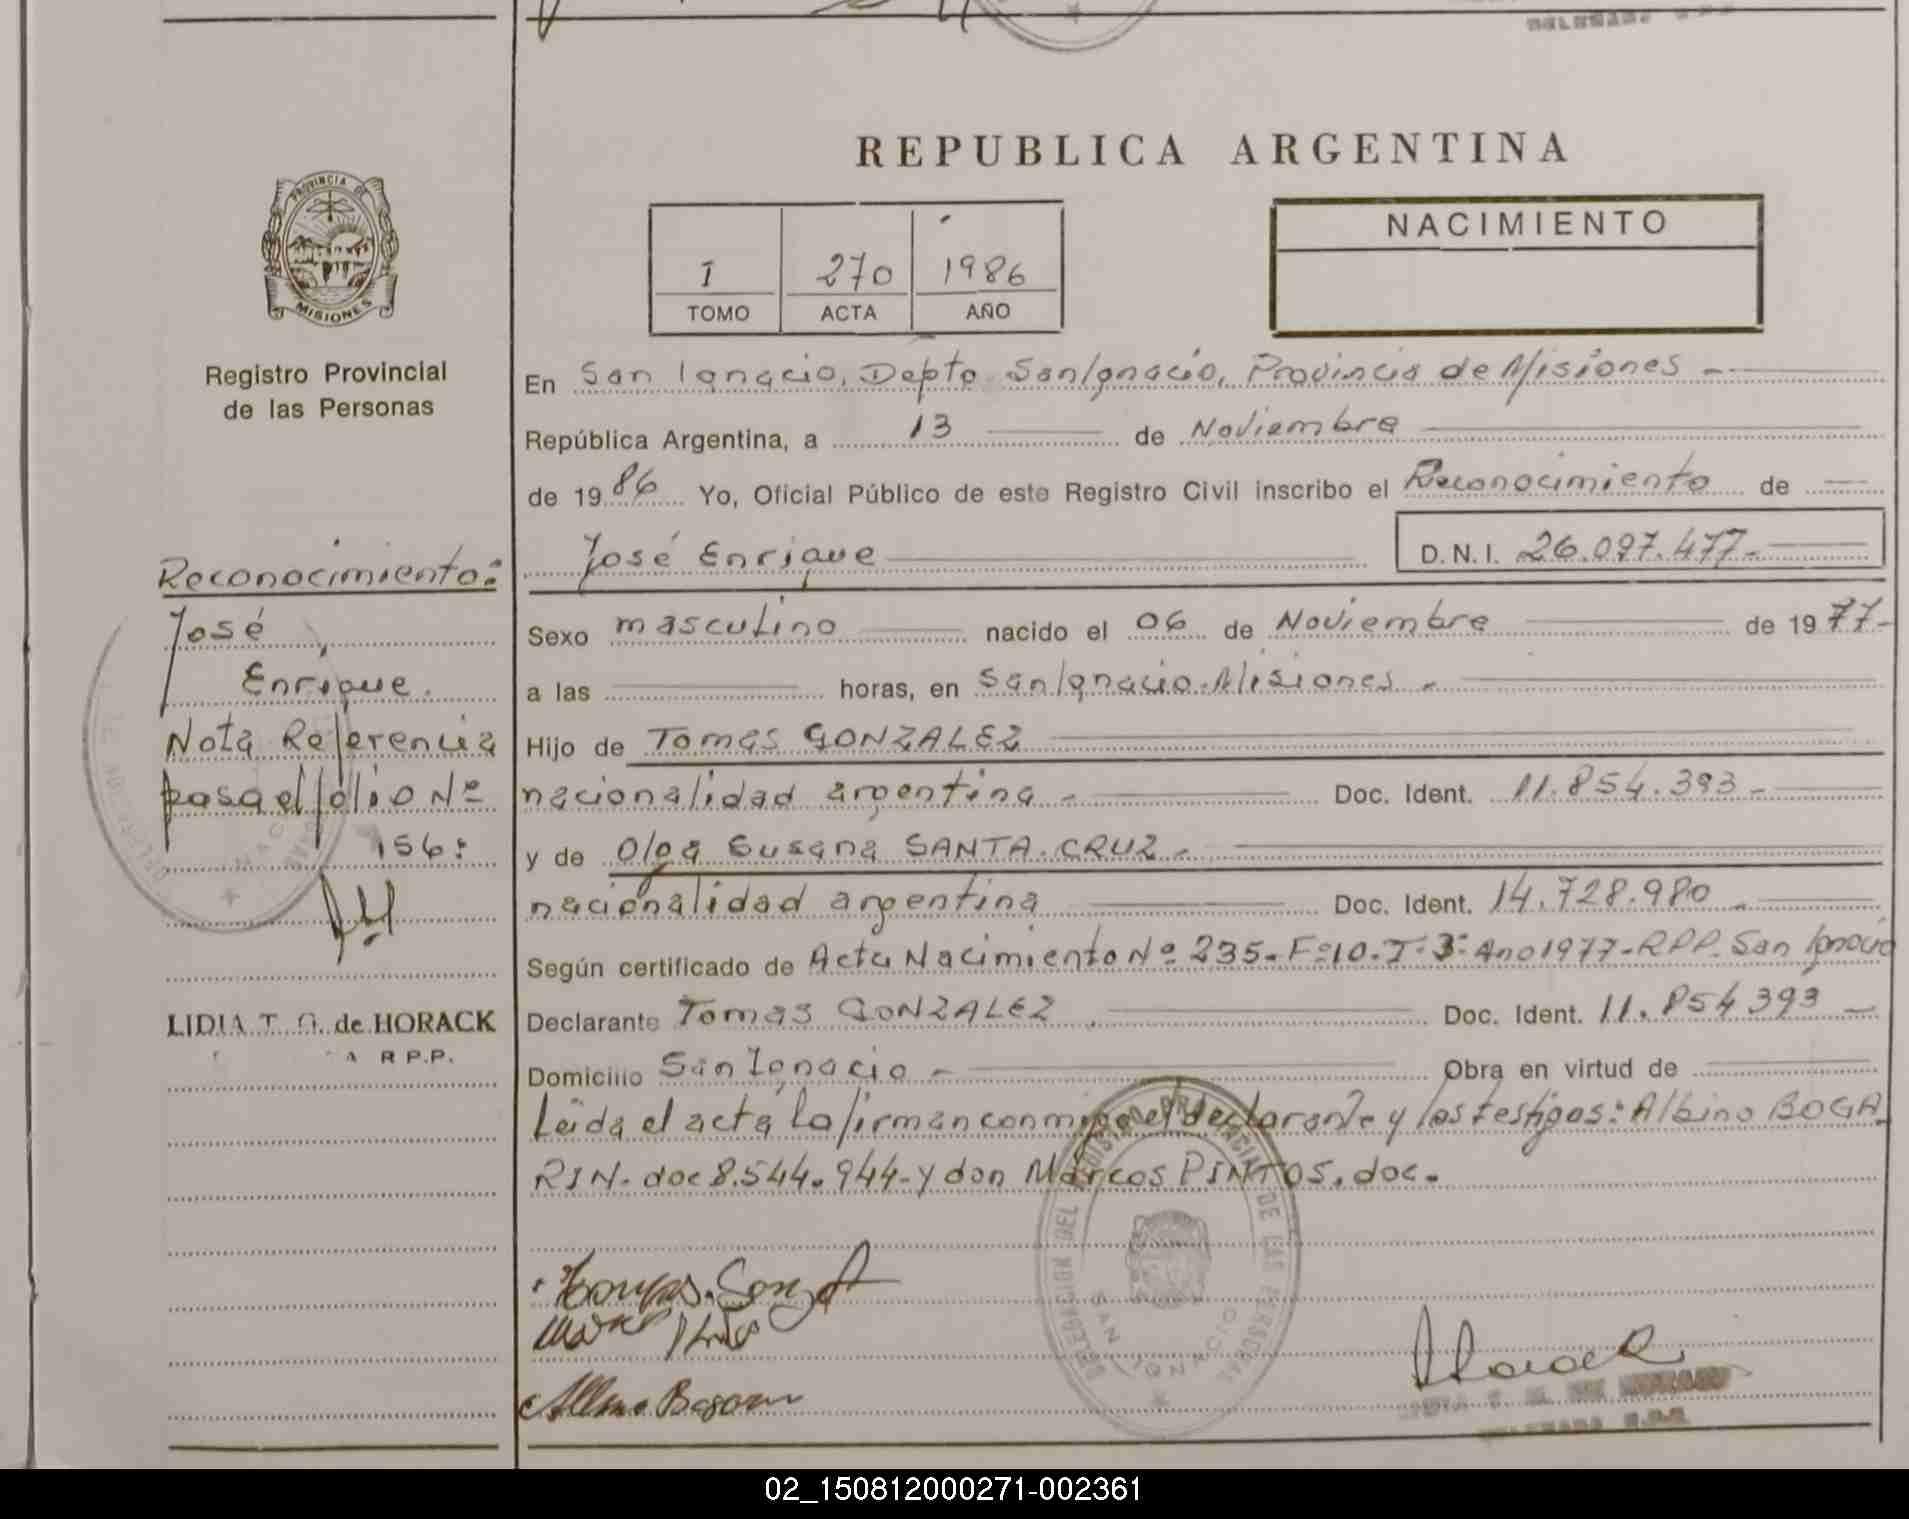 REPUBLICA ARGENTINA
PROVINCIA DE
MISIONES
Registro Provincial
de las Personas
1 270 1986
TOMO ACTA AÑO
NACIMIENTO
En San Ignacio, Depto San Ignacio, Provincia de Misiones -
República Argentina, a 13 de Noviembre
de 1986 Yo, Oficial Público de este Registro Civil inscribo el Reconocimiento de
José Enrique D.N.I. 26.097.477-
Sexo masculino nacido el 06 de Noviembre de 1977-
a las horas, en San Ignacio-Misiones -
Hijo de Tomas GONZALEZ
nacionalidad argentina - Doc. Ident. 11.854.393-
y de Olga Susana SANTA-CRUZ-
nacionalidad argentina Doc. Ident. 14.728.980 -
Según certificado de Acta Nacimiento Nº 235-Fº10-T-3º Año 1977-RPP. San Ignacio
Declarante Tomas GONZALEZ Doc. Ident. 11.854393 -
Domicilio San Ignacio - Obra en virtud de
Leida el acta la firman conmigo el declarante y los testigos: Albino BOGA
RIN. doc 8.544.944-y don Marcos PINTOS. doc.
Reconocimiento:
José
Enrique.
Nota Referencia
pasa el folio Nº
156:
LIDIA T. G. de HORACK
R P.P.
DELEGACION DEL REGISTRO PROVINCIAL DE LAS PERSONAS
SAN IGNACIO
Horack
02_150812000271-002361